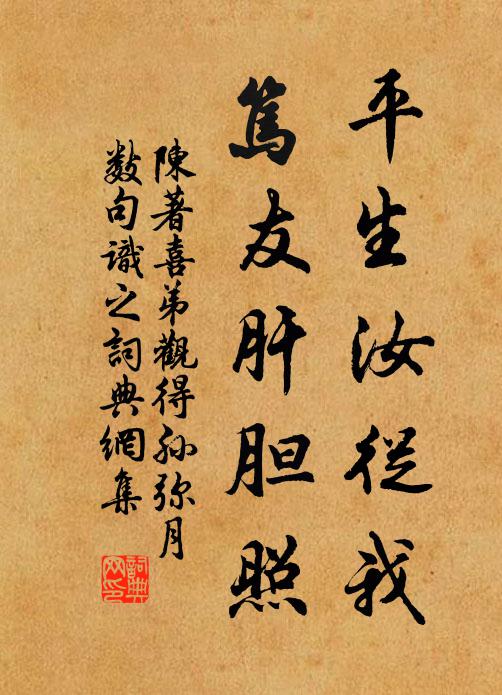 平生汝從我
篤友肝胆照
陳著喜弟觀得孫弥月
數句識之詞典網集
詞典
网印